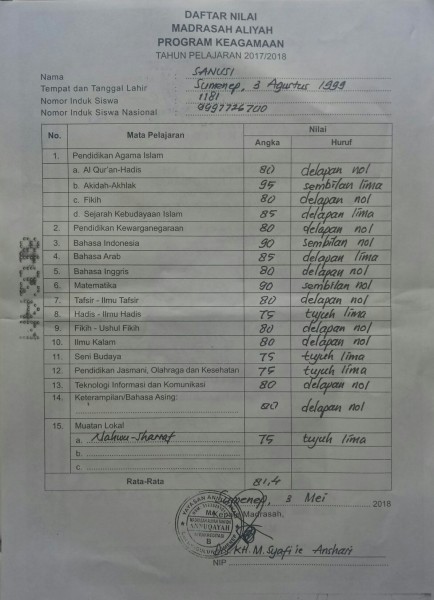 DAFTAR NILAI
MADRASAH ALIYAH
PROGRAM KEAGAMAAN
TAHUN PELAJARAN 2017/2018
Nama : SANUSI
Tempat dan Tanggal Lahir : Sumenep, 3 Agustus 1999
Nomor Induk Siswa : 1181
Nomor Induk Siswa Nasional : 9997726700
No. Mata Pelajaran Nilai
Angka Huruf
1. Pendidikan Agama Islam
a. Al Qur'an-Hadis 80 delapan nol
b. Akidah-Akhlak 95 sembilan lima
c. Fikih 80 delapan nol
d. Sejarah Kebudayaan Islam 85 delapan lima
2. Pendidikan Kewarganegaraan 80 delapan nol
3. Bahasa Indonesia 90 sembilan nol
4. Bahasa Arab 85 delapan lima
5. Bahasa Inggris 80 delapan nol
6. Matematika 90 sembilan nol
7. Tafsir - Ilmu Tafsir 80 delapan nol
8. Hadis - Ilmu Hadis 75 tujuh lima
9. Fikih - Ushul Fikih 80 delapan nol
10. Ilmu Kalam 80 delapan nol
11. Seni Budaya 75 tujuh lima
12. Pendidikan Jasmani, Olahraga dan Kesehatan 75 tujuh lima
13. Teknologi Informasi dan Komunikasi 80 delapan nol
14. Keterampilan/Bahasa Asing:
80 delapan nol
15. Muatan Lokal
a. Nahwu-Sharraf 75 tujuh lima
b.
c.
Rata-Rata 81,4
Sumenep, 3 Mei 2018
Kepala Madrasah,
MA
ANNUQAYAH
Drs. KH. M. Syafi'ie Anshari
NIP